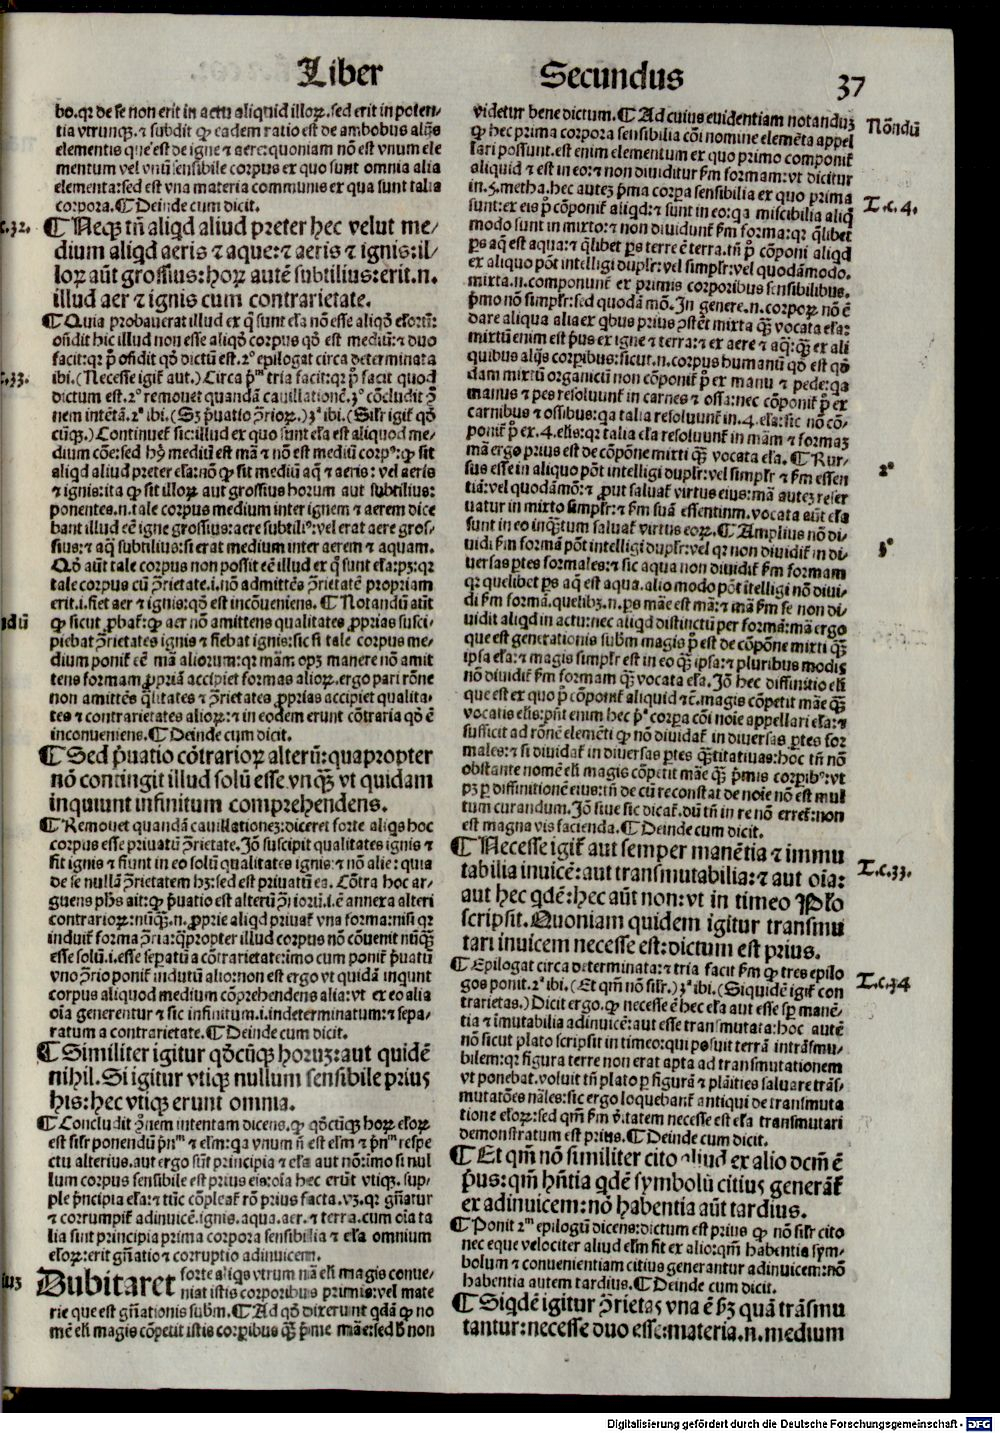 Liber Secundus 37
bo.qꝛ de se non erit in actu aliquid illoꝝ.sed erit in poten-
tia vtrunqꝫ.⁊ subdit ꝙ eadem ratio est de ambobus aliis
elementis que est de igne ⁊ aere:quoniam nō est vnum ele
mentum vel vnū sensibile corpus ex quo sunt omnia alia
elementa:sed est vna materia communis ex qua sunt talia
corpora.¶Deinde cum dicit.
T.c.32.
¶Neqꝫ tn̄ aliqd aliud preter hec velut me/
dium aliqd aeris ⁊ aque:⁊ aeris ⁊ ignis:il-
loꝝ aūt grossius:hoꝝ autē subtilius:erit.n.
illud aer ⁊ ignis cum contrarietate.
¶Quia probauerat illud ex q̄ sunt el'a nō esse aliqō el'oꝝ:
ondit hic illud non esse aliqō corpus qō est mediū:⁊ duo
facit:qꝛ p̄ ondit qō dictū est.2º epilogat circa determinata
T.c.33.
ibi.(Necesse igit̄ aut.)Circa p̄ᵐ tria facit:qꝛ p̄ facit quod
dictum est.2º remouet quandā cauillationē.3º cōcludit ꝯ̄
nem intētā.2ª ibi.(Sꝫ p̄uatio ꝯ̄rioꝝ.)3ª ibi.(Sil'r igit̄ qō
cūqꝫ.)Continuet̄ sic:illud ex quo sunt el'a est aliquod me-
dium cōe:sed hꝰ mediū est mā ⁊ nō est mediū corpꝰ:ꝙ sit
aliqd aliud preter el'a:nō ꝙ sit mediū aq̄ ⁊ aeris: vel aeris
⁊ ignis:ita ꝙ sit illoꝝ aut grossius horum aut subtilius:
ponentes.n.tale corpus medium inter ignem ⁊ aerem dice
bant illud eē igne grossius:aere subtiliꝰ:vel erat aere gros-
sius:⁊ aq̄ subtilius:si erat medium inter aerem ⁊ aquam.
Qō aūt tale corpus non possit eē illud ex q̄ sunt el'a:pꝫ:qꝛ
tale corpus cū ꝯ̄rietate.i.nō admittēs ꝯ̄rietatē propriam
erit.i.fiet aer ⁊ ignis:qō est incōueniens.¶Notandū aūt
ꝙ sicut ꝓbat̄:ꝙ aer nō amittens qualitates ꝓprias susci-
piebat ꝯ̄rietates ignis ⁊ fiebat ignis:sic si tale corpus me-
dium ponit̄ eē mā aliorum:qꝛ mām opꝫ manere nō amit
tens formam ꝓpriā accipiet formas alioꝝ.ergo pari rōne
non amittēs q̄litates ⁊ ꝯ̄rietates ꝓprias accipiet qualita-
tes ⁊ contrarietates alioꝝ:⁊ in eodem erunt cōtraria qō ē
inconueniens.¶Deinde cum dicit.
¶Sed p̄uatio cōtrarioꝝ alterū:quapropter
nō contingit illud solū esse vnqꝫ vt quidam
inquiunt infinitum comprehendens.
¶Remouet quandā cauillationeꝫ:diceret forte aliqs hoc
corpus esse priuatū ꝯ̄rietate.Jō suscipit qualitates ignis ⁊
fit ignis ⁊ fiunt in eo solū qualitates ignis:⁊ nō alie: quia
de se nullā ꝯ̄rietatem hꝫ:sed est priuatū ea. Cōtra hoc ar-
guens ph̄s ait:ꝙ p̄uatio est alterū ꝯ̄riorū.i.ē annexa alteri
contrarioꝝ:nūqꝫ.n.ꝓprie aliqd priuat̄ vna forma:nisi qꝛ
induit̄ forma ꝯ̄ria:q̄propter illud corpus nō cōuenit nūqꝫ
esse solū.i.esse sepatū a cōtrarietate:imo cum ponit̄ p̄uatū
vno ꝯ̄rio ponit̄ indutū alio:non est ergo vt quidā inqunt
corpus aliquod medium cōprehendens alia:vt ex eo alia
oīa generentur ⁊ sic infinitum.i.indeterminatum:⁊ sepa-
ratum a contrarietate.¶Deinde cum dicit.
¶Similiter igitur qōcūqꝫ horuꝫ:aut quidē
nihil.Si igitur vtiqꝫ nullum sensibile prius
his:hec vtiqꝫ erunt omnia.
¶Concludit ꝯ̄nem intentam dicens.ꝙ qōcūqꝫ hoꝝ el'oꝝ
est sil'r ponendū p̄nᵐ ⁊ el'm:qa vnum n̄ est el'm ⁊ p̄nᵐ respe
ctu alterius.aut ergo sūt principia ⁊ el'a aut nō:imo si nul
lum corpus sensibile est prius eis:oīa hec erūt vtiqꝫ.sup-
ple p̄ncipia el'a:⁊ tūc cōpleat̄ rō prius facta.vꝫ.qꝛ gn̄atur
⁊ corrumpit̄ adinuicē.ignis.aqua.aer.⁊ terra.cum oīa ta
lia sunt principia prima corpora sensibilia ⁊ el'a omnium
el'oꝝ:erit gn̄atio ⁊ corruptio adinuicem.
Dubitaret forte aliqs vtrum nā el'i magis conue/
niat istis corporibus primis:vel mate
rie que est gn̄ationis subm̄.¶Ad qō dixerunt qdā ꝙ no
mē el'i magis cōpetit istis corꝑibus qꝫ p̄me māe:sed ħ non
videtur bene dictum.¶Ad cuius euidentiam notanduꝫ
Nōndū
ꝙ hec prima corpora sensibilia cōi nomine elemēta appel
lari possunt.est enim elementum ex quo primo componit̄
aliquid ⁊ est in eo:⁊ non diuiditur f̄m formam:vt dicitur
in.5.metha.hec auteꝫ p̄ma corpa sensibilia ex quo prima
T.c.4.
sunt:ex eis p̄ cōponit̄ aliqd:⁊ sunt in eo:qa miscibilia aliq̄
modo sunt in mixto:⁊ non diuidunt̄ f̄m forma:qꝛ q̄libet
ps aq̄ est aqua:⁊ q̄libet ps terre ē terra.tn̄ p̄ cōponi aliqd
ex aliquo pōt intelligi dupl'r:vel simpl'r:vel quodāmodo.
mixta.n.componunt̄ ex primis corporibus sensibilibus.
p̄mo nō simpl'r:sed quodā mō.In genere.n.corpoꝝ nō ē
dare aliqua alia ex qbus prius ꝯstēt mixta qꝫ vocata el'a:
mixtū enim est p̄us ex igne ⁊ terra:⁊ ex aere ⁊ aq̄:qꝫ ex ali
quibus aliis corpibus:sicut.n.corpus humanū qō est qō
dam mixtū organicū non cōponit̄ p̄ ex manu ⁊ pede:qa
manus ⁊ pes resoluunt̄ in carnes ⁊ ossa:nec cōponit̄ p̄ ex
carnibus ⁊ ossibus:qa talia resoluunt̄ in.4.el'a:sic nō cō-
ponit̄ p̄ ex.4.el'is:qꝛ talia el'a resoluunt̄ in mām ⁊ formaꝫ
mā ergo prius est de cōpōne mixti qꝫ vocata el'a.¶Rur-
2º
sus esse in aliquo pōt intelligi dupl'r:vel simpl'r ⁊ f̄m essen
tiā:vel quodāmō:⁊ ꝓut saluat̄ virtus eius:mā auteꝫ reser
uatur in mixto simpl'r:⁊ f̄m suā essentiam.vocata aūt el'a
sunt in eo inqꝫtum saluat̄ virtus eoꝝ.¶Amplius nō di-
3º
uidi f̄m formā pōt intelligi dupl'r:vel qꝛ non diuidit̄ in di-
uersas ptes formales:⁊ sic aqua non diuidit̄ f̄m formam
qꝛ quelibet ps aq̄ est aqua.alio modo pōt ītelligi nō diui-
di f̄m formā.quelibꝫ.n.ps māe est mā:⁊ mā f̄m se non di-
uidit aliqd in actu:nec aliqd distinctū per formā:mā ergo
que est generationis subm̄ magis p̄ est de cōpōne mixti qꝫ
ipsa el'a:⁊ magis simpl'r est in eo qꝫ ipsa:⁊ pluribus modis
nō diuidit̄ f̄m formam qꝫ vocata el'a.Jō hec diffinitio el'i
que est ex quo p̄ cōponit̄ aliquid ⁊c̄.magis cōpetit māe qꝫ
vocatis el'is:pn̄t enim hec pª corpa cōi noīe appellari el'a:⁊
sufficit ad rōnē elemēti ꝙ nō diuidat̄ in diuersas ptes for
males:⁊ si diuidat̄ in diuersas ptes qꝫtitatiuas:hoc tn̄ nō
obstante nomē el'i magis cōpetit māe qꝫ p̄mis corpibꝰ:vt
pꝫ p diffinitionē eius:tn̄ de cū reconstat de noīe nō est mul
tum curandum.Jō siue sic dicat̄.dū tn̄ in re nō erret̄:non
est magna vis facienda.¶Deinde cum dicit.
¶Necesse igit̄ aut semper manētia ⁊ immu
T.c.33.
tabilia inuicē:aut transmutabilia:⁊ aut oīa:
aut hec qdē:hec aūt non:vt in timeo Plo
scripsit.Quoniam quidem igitur transmu
tari inuicem necesse est:dictum est prius.
¶Epilogat circa determinata:⁊ tria facit f̄m ꝙ tres epilo
T.c.34
gos ponit.2ª ibi.(Et qm̄ nō sil'r.)3ª ibi.(Siquidē igit̄ con
trarietas.)Dicit ergo.ꝙ necesse ē hec el'a aut esse sp̄ manē-
tia ⁊ īmutabilia adinuicē:aut esse transmutata:hoc autē
nō sicut plato scripsit in timeo:qui posuit terrā intrāsmu-
bilem:qꝛ figura terre non erat apta ad transmutationem
vt ponebat.voluit tn̄ plato p figurā ⁊ plāities saluare trās-
mutatōes nāles:sic ergo loquebant̄ antiqui de transmuta
tione el'oꝝ:sed qm̄ f̄m v̄itatem necesse est el'a transmutari
demonstratum est prius.¶Deinde cum dicit.
¶Et qm̄ nō similiter cito aliud ex alio dcm̄ ē
p̄us:qm̄ hn̄tia qdē symbolū citius generāt̄
ex adinuicem:nō habentia aūt tardius.
¶Ponit 2ᵐ epilogū dicens:dictum est prius ꝙ nō sil'r cito
nec eque velociter aliud el'm fit ex alio:qm̄ habentia sym-
bolum ⁊ conuenientiam citius generantur adinuicem:nō
habentia autem tardius.¶Deinde cum dicit.
¶Siqdē igitur ꝯ̄rietas vna ē f̄ꝫ quā trāsmu
tantur:necesse duo esse:materia.n.medium
Digitalisierung gefördert durch die Deutsche Forschungsgemeinschaft - DFG